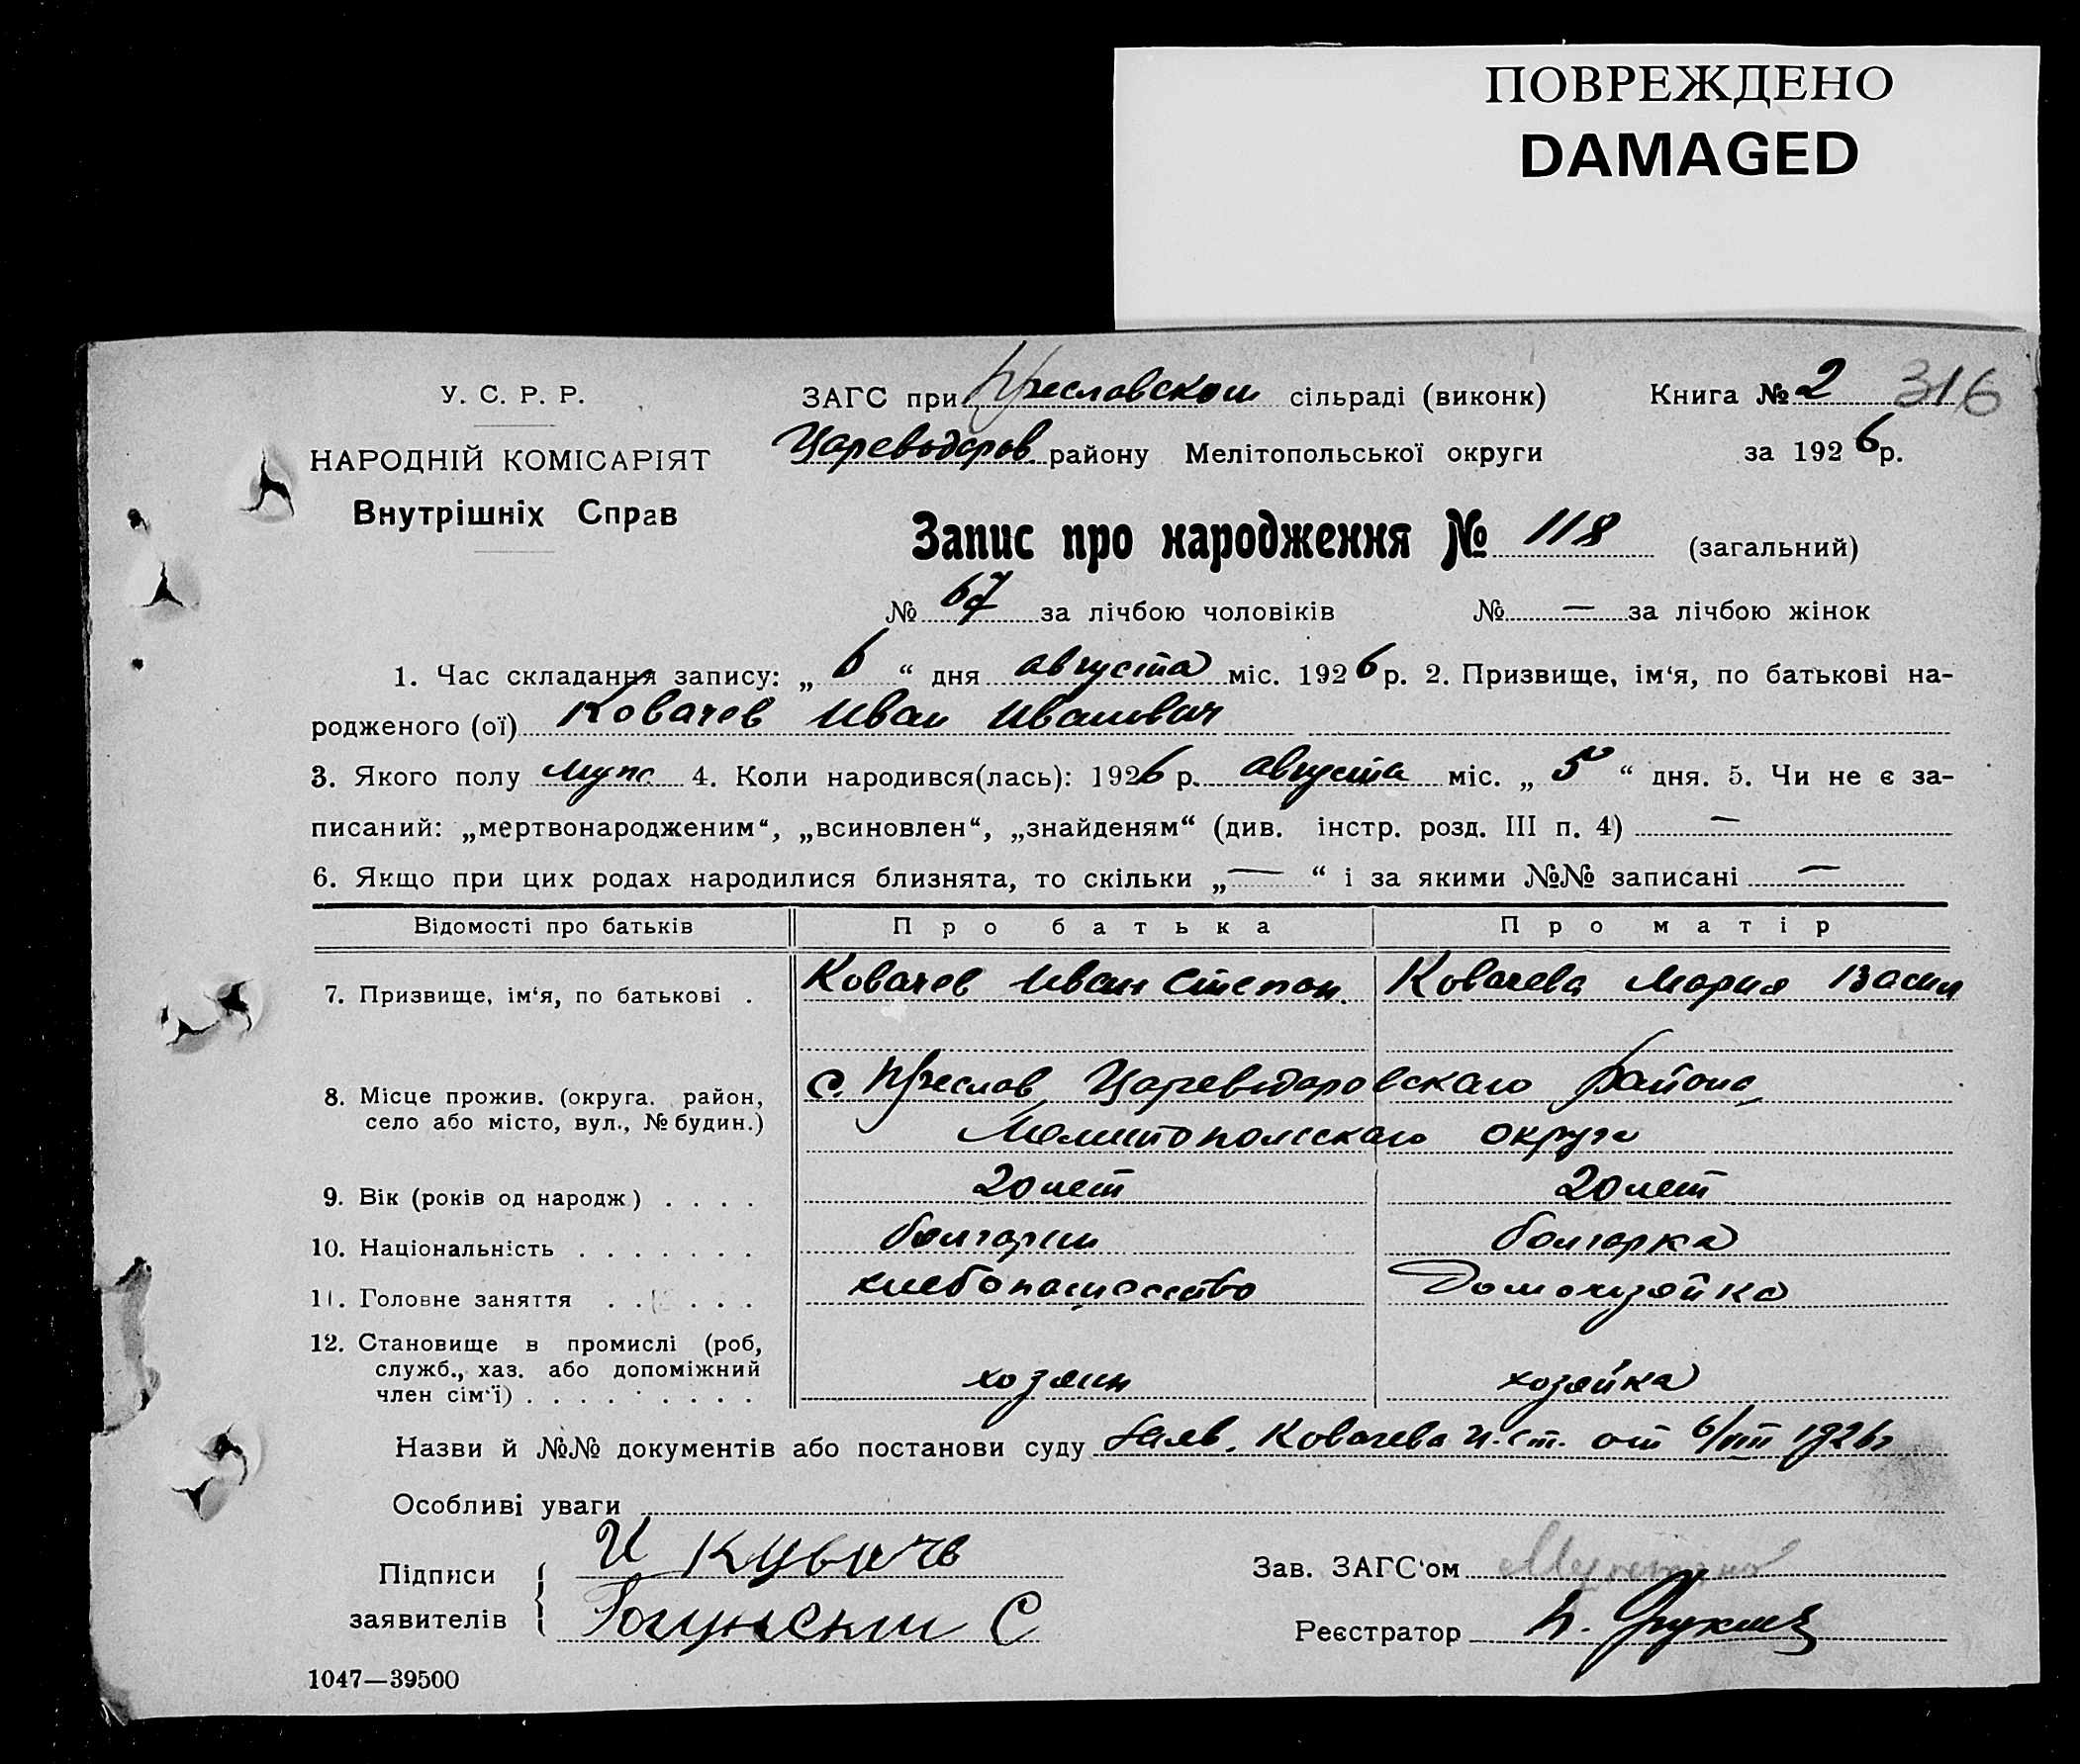 ПОВРЕЖДЕНО
DAMAGED
У. С. Р. Р.
НАРОДНІЙ КОМІСАРІЯТ
Внутрішніх Справ
ЗАГС при Преславском сільраді (виконк) Книга № 2 316
Цареводаров. району Мелітопольської округи за 1926 р.
Запис про народження № 118 (загальний)
№ 67 за лічбою чоловіків № — за лічбою жінок
1. Час складання запису: „ 6 “ дня августа міс. 1926 р. 2. Призвище, ім‘я, по батькові на-
родженого (ої) Ковачев Иван Иванович
3. Якого полу муж. 4. Коли народився(лась): 1926 р. августа міс. „ 5 “ дня. 5. Чи не є за-
писаний: „мертвонародженим“, „всиновлен“, „знайденям“ (див. інстр. розд. III п. 4) —
6. Якщо при цих родах народилися близнята, то скільки „ — “ і за якими №№ записані —
Відомості про батьків Про батька Про матір
7. Призвище, ім‘я, по батькові . Ковачев Иван Степан. Ковачева Мария Васил
8. Місце прожив. (округа. район, с. Преслав, Цареводаровскаго района,
село або місто, вул., № будин.) Мелитопольскаго округа
9. Вік (років од народж) . . . . 20 лет 20 лет
10. Національність . . . . . . . болгарин болгарка
11. Головне заняття . . . . . хлебопашество Домохозяйка
12. Становище в промислі (роб,
служб., хаз. або допоміжний
член сім‘ї) . . . . . . . . . хозяин хозяйка
Назви й №№ документів або постанови суду Заяв. Ковачева И. Ст. от 6/VIII 1926 г
Особливі уваги
Підписи
заявителів
И Кувачв
С
Зав. ЗАГС‘ом
Реєстратор
1047—39500